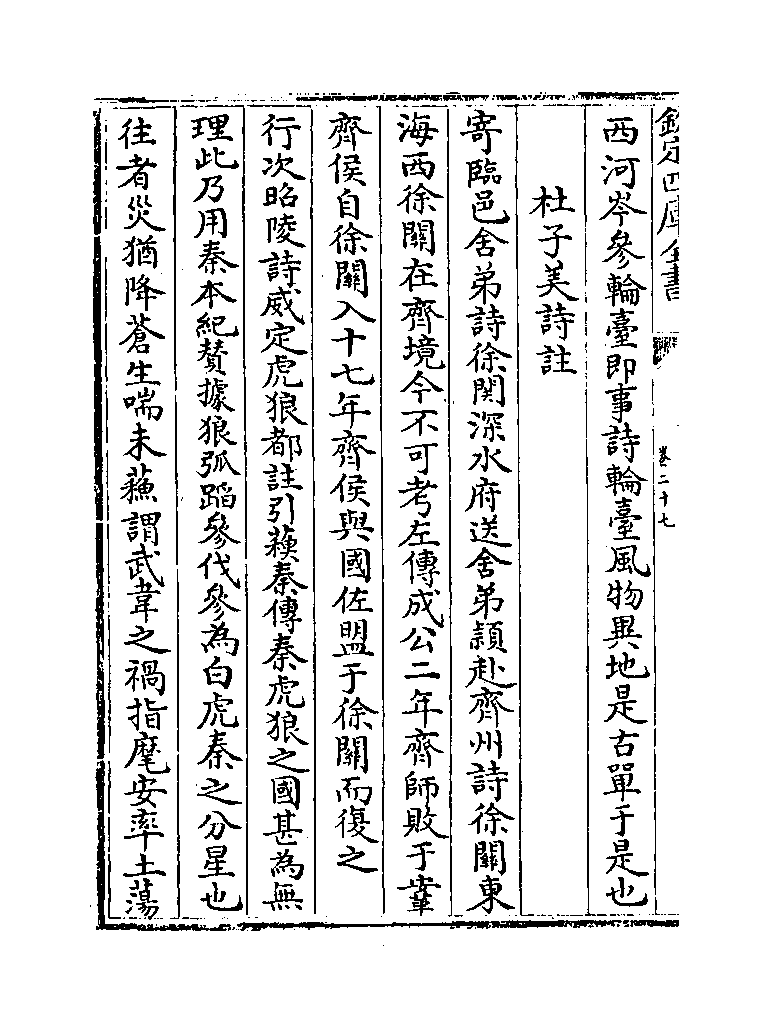 欽定四庫全書
卷二十七
西河岑參輪臺即事詩輪臺風物異地是古單于是也
杜子美詩註
寄臨邑舍弟詩徐関深水府送舍弟頴赴齊州詩徐關東
海西徐關在齊境今不可考左傳成公二年齊師敗于鞌
齊侯自徐關入十七年齊侯與國佐盟于徐關而復之
行次昭陵詩威定虎狼都註引蘇秦傳秦虎狼之國甚為無
理此乃用秦本紀賛據狼弧蹈參伐參為白虎秦之分星也
往者災猶降蒼生喘未蘓謂武韋之禍指麾安率土蕩